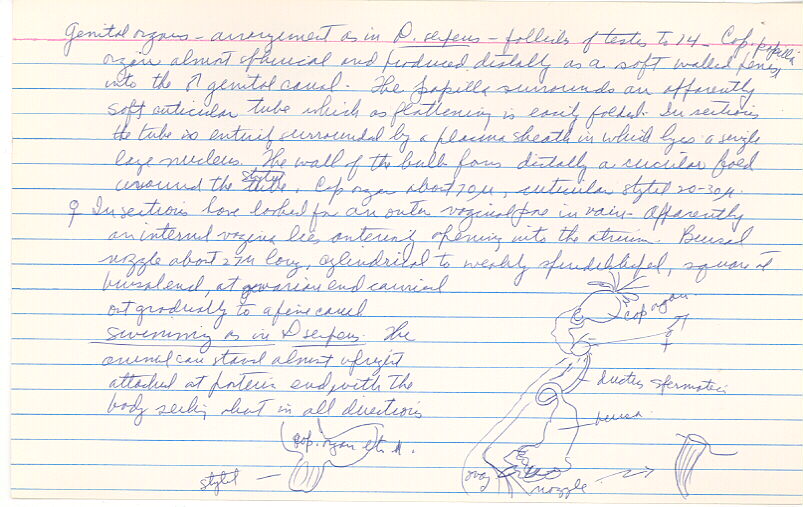 Genital organs - arrangement as in D. serpens - follicles of testes to 14 - Cop. papilla
organ almost spherical and produced distally as a soft walled penis
into the ♂ genital canal. The papilla surrounds an apparently
soft cuticular tube which on flattening is easily folded. In sections
the tube is entirely surrounded by a plasma sheath in which lies a single
large nucleus. The wall of the bulb forms distally a circular fold
around the stylet tube. Cop organ about 70µ, cuticular stylet 20-30µ.
♀ In sections have looked for an outer vaginal pore in vain - apparently
an internal vagina lies anteriorly opening into the atrium. Bursal
nozzle about 27µ long, cylindrical to weakly spindleshaped, square at
bursal end, at ovarian end carried
out gradually to a fine canal
Swimming as in D serpens. The
animal can stand almost upright
attached at posterior end, with the
body seeking about in all directions
cop organ
ductus spermatici
bursa
cop. organ etc
stylet
ovary
nozzle